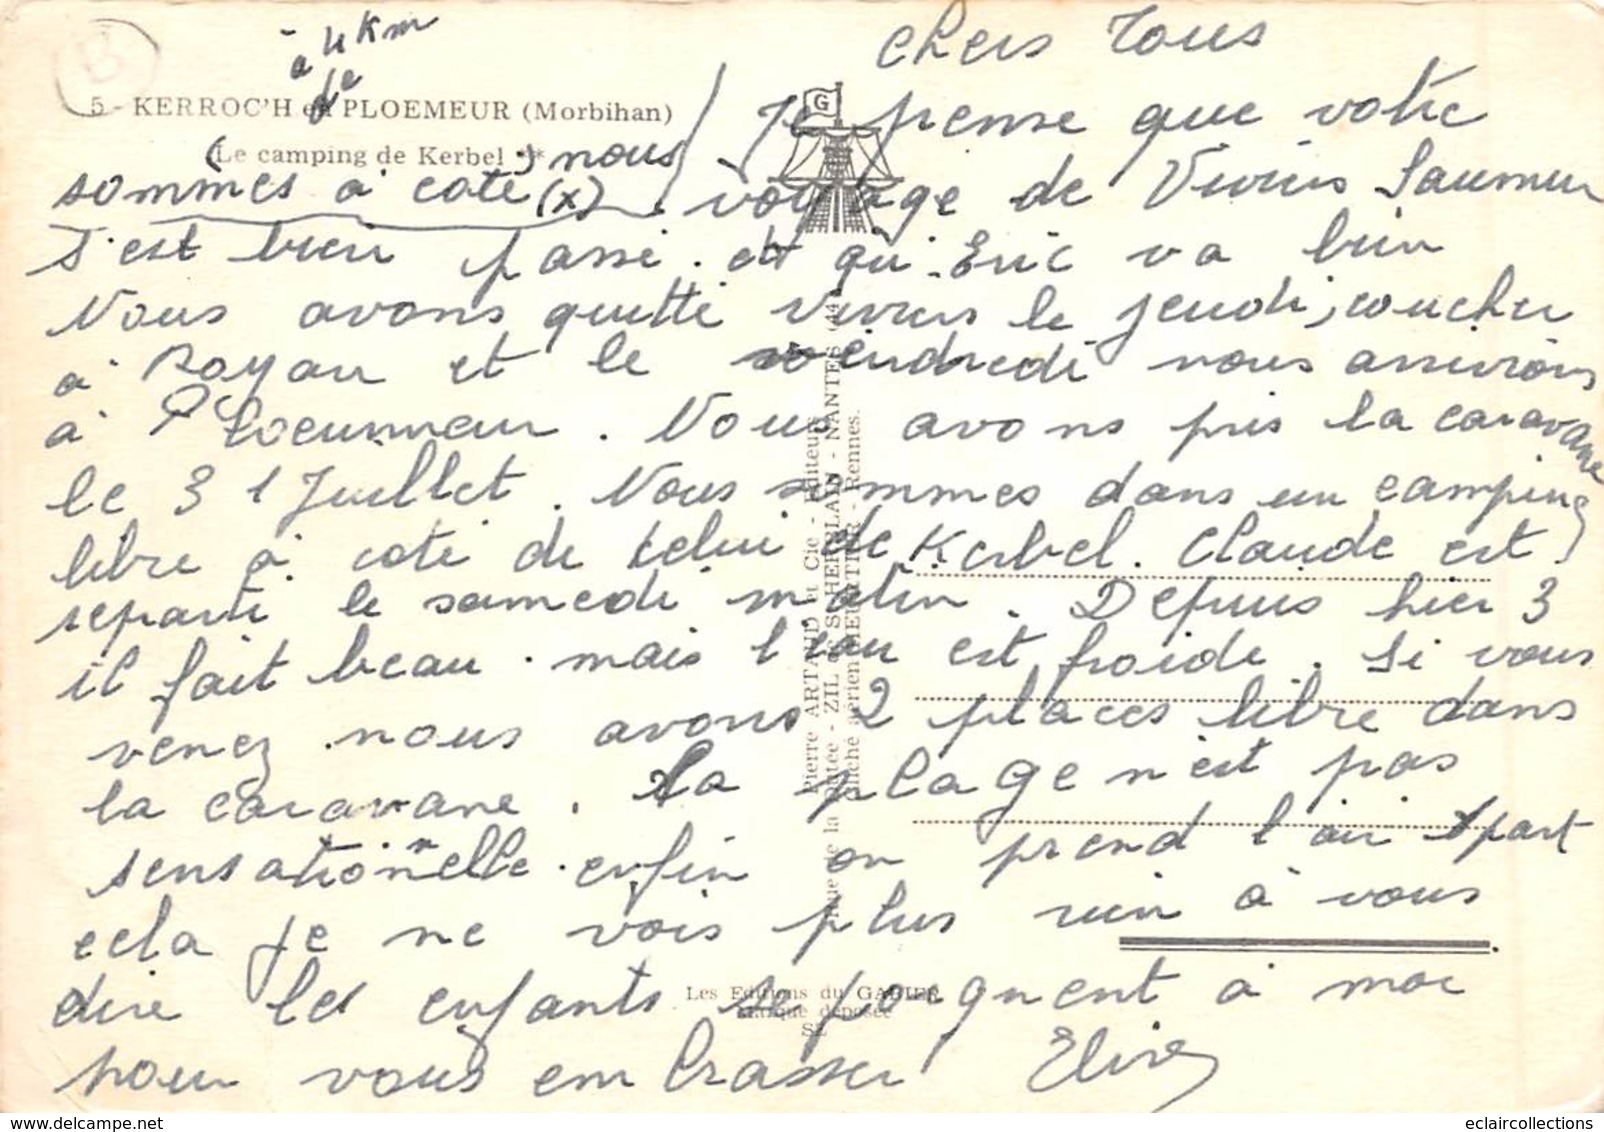 à 4 Km
de
5 - KERROC'H en PLOEMEUR (Morbihan)
(Le camping de Kerbel **) nous
sommes à coté (x)
Chers Tous
Je pense que votre
voyage de Viviers Saumur
s'est bien passé. et qu'Eric va bien
Nous avons quitté Viviers le jeudi, coucher
à Royan et le vendredi nous arrivions
à Ploeumeur. Nous avons pris la caravane
le 31 Juillet. Nous sommes dans un camping
libre à coté de celui de Kerbel. Claude est
reparti le samedi matin. Depuis hier 3
il fait beau. mais l'eau est froide. Si vous
venez nous avons 2 places libre dans
la caravane. La plage n'est pas
sensationnelle. enfin on prend l'air Apart
cela je ne vois plus rien à vous
dire les enfants se joignent à moi
pour vous embrasser
Pierre ARTAUD et Cie - Editeurs
- ZIL de St-HERBLAIN - NANTES (44)
Cliché aérien HEURTIER - Rennes.
Les Editions du GABIER
Marque déposée
G
eclaircollections